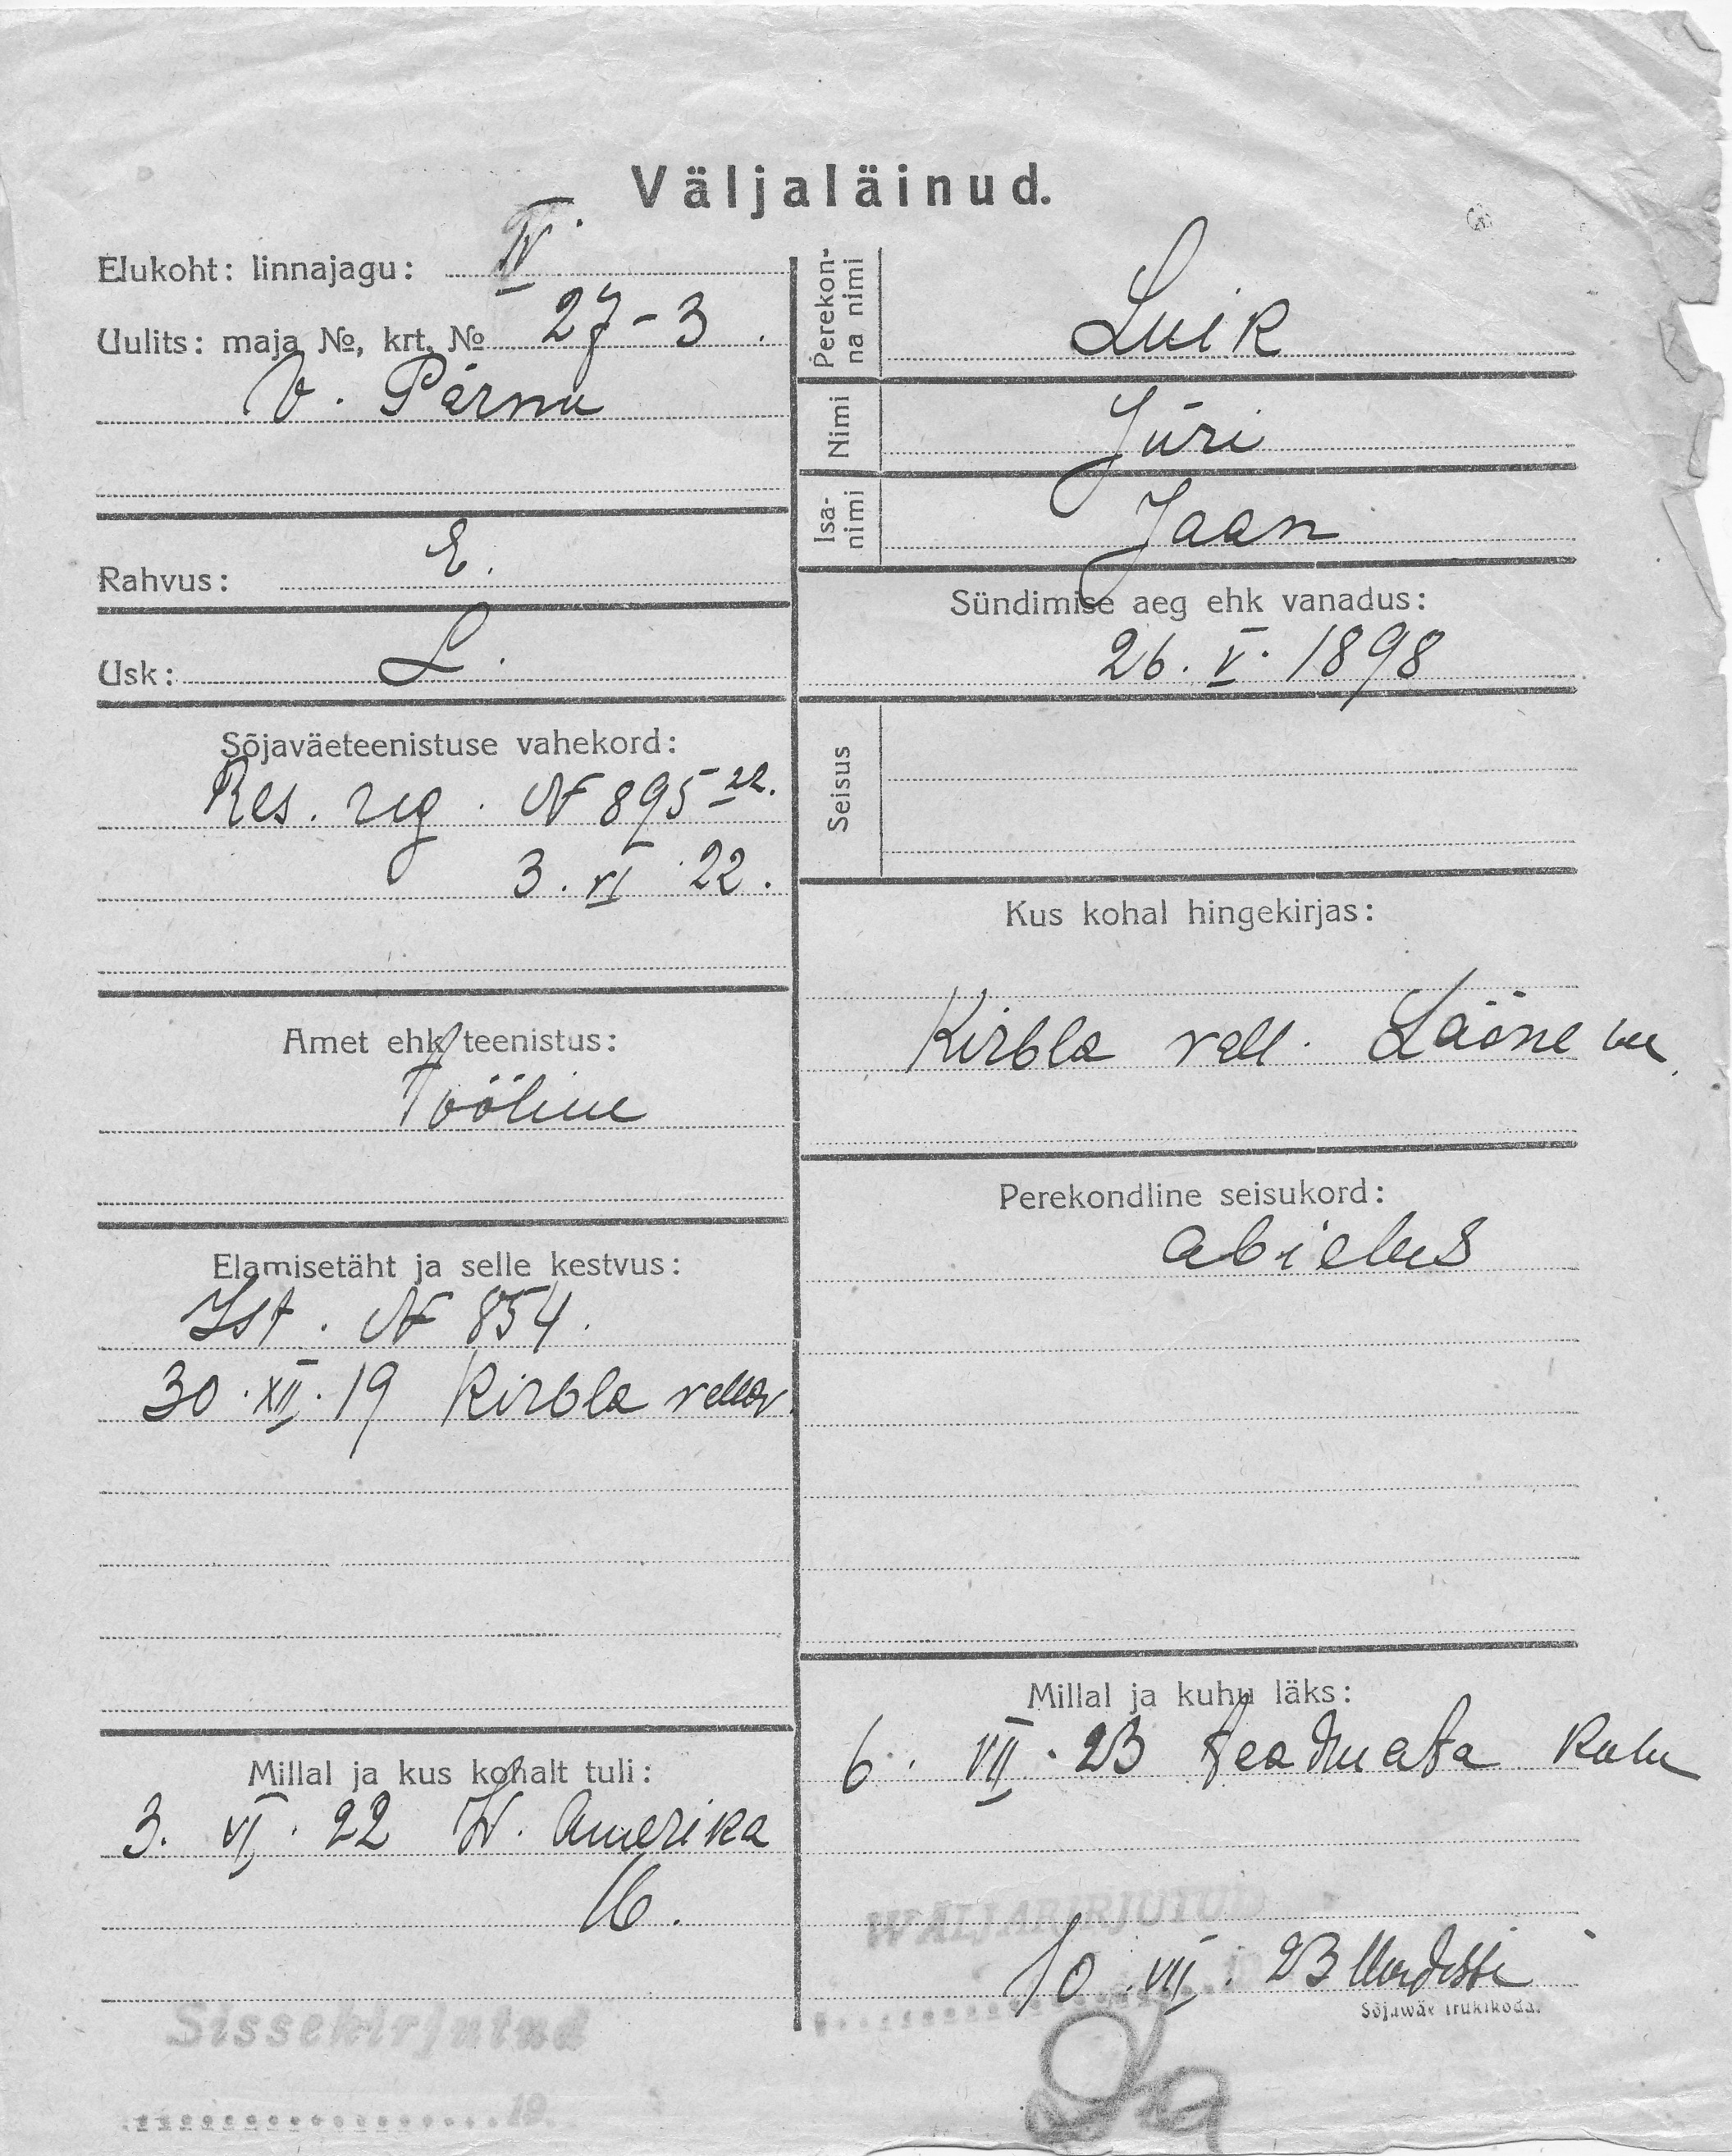 Väljaläinud.
Elukoht: linnajagu: IV.
Uulits: maja №, krt. № 27-3.
V. Pärnu
Rahvus: E.
Usk: L.
Sõjaväeteenistuse vahekord:
Res. reg. № 895 22.
3. VI 22.
Amet ehk teenistus:
Tööline
Elamisetäht ja selle kestvus:
Ist. № 854.
30. XII. 19 Kirbla vallav.
Millal ja kus kohalt tuli:
3. VI. 22 Amerika
16.
Sissekirjutud
19
Perekon-
na nimi
Luik
Nimi
Jüri
Isa-
nimi
Jaan
Sündimise aeg ehk vanadus:
26. V. 1898
Seisus
Kus kohal hingekirjas:
Kirbla vall. Lääne m.
Perekondline seisukord:
abielus
Millal ja kuhu läks:
6. VII. 23 teadmata kuhu
WÄLJAKIRJUTUD
10. VII. 23
Sõjawäe trukikoda.